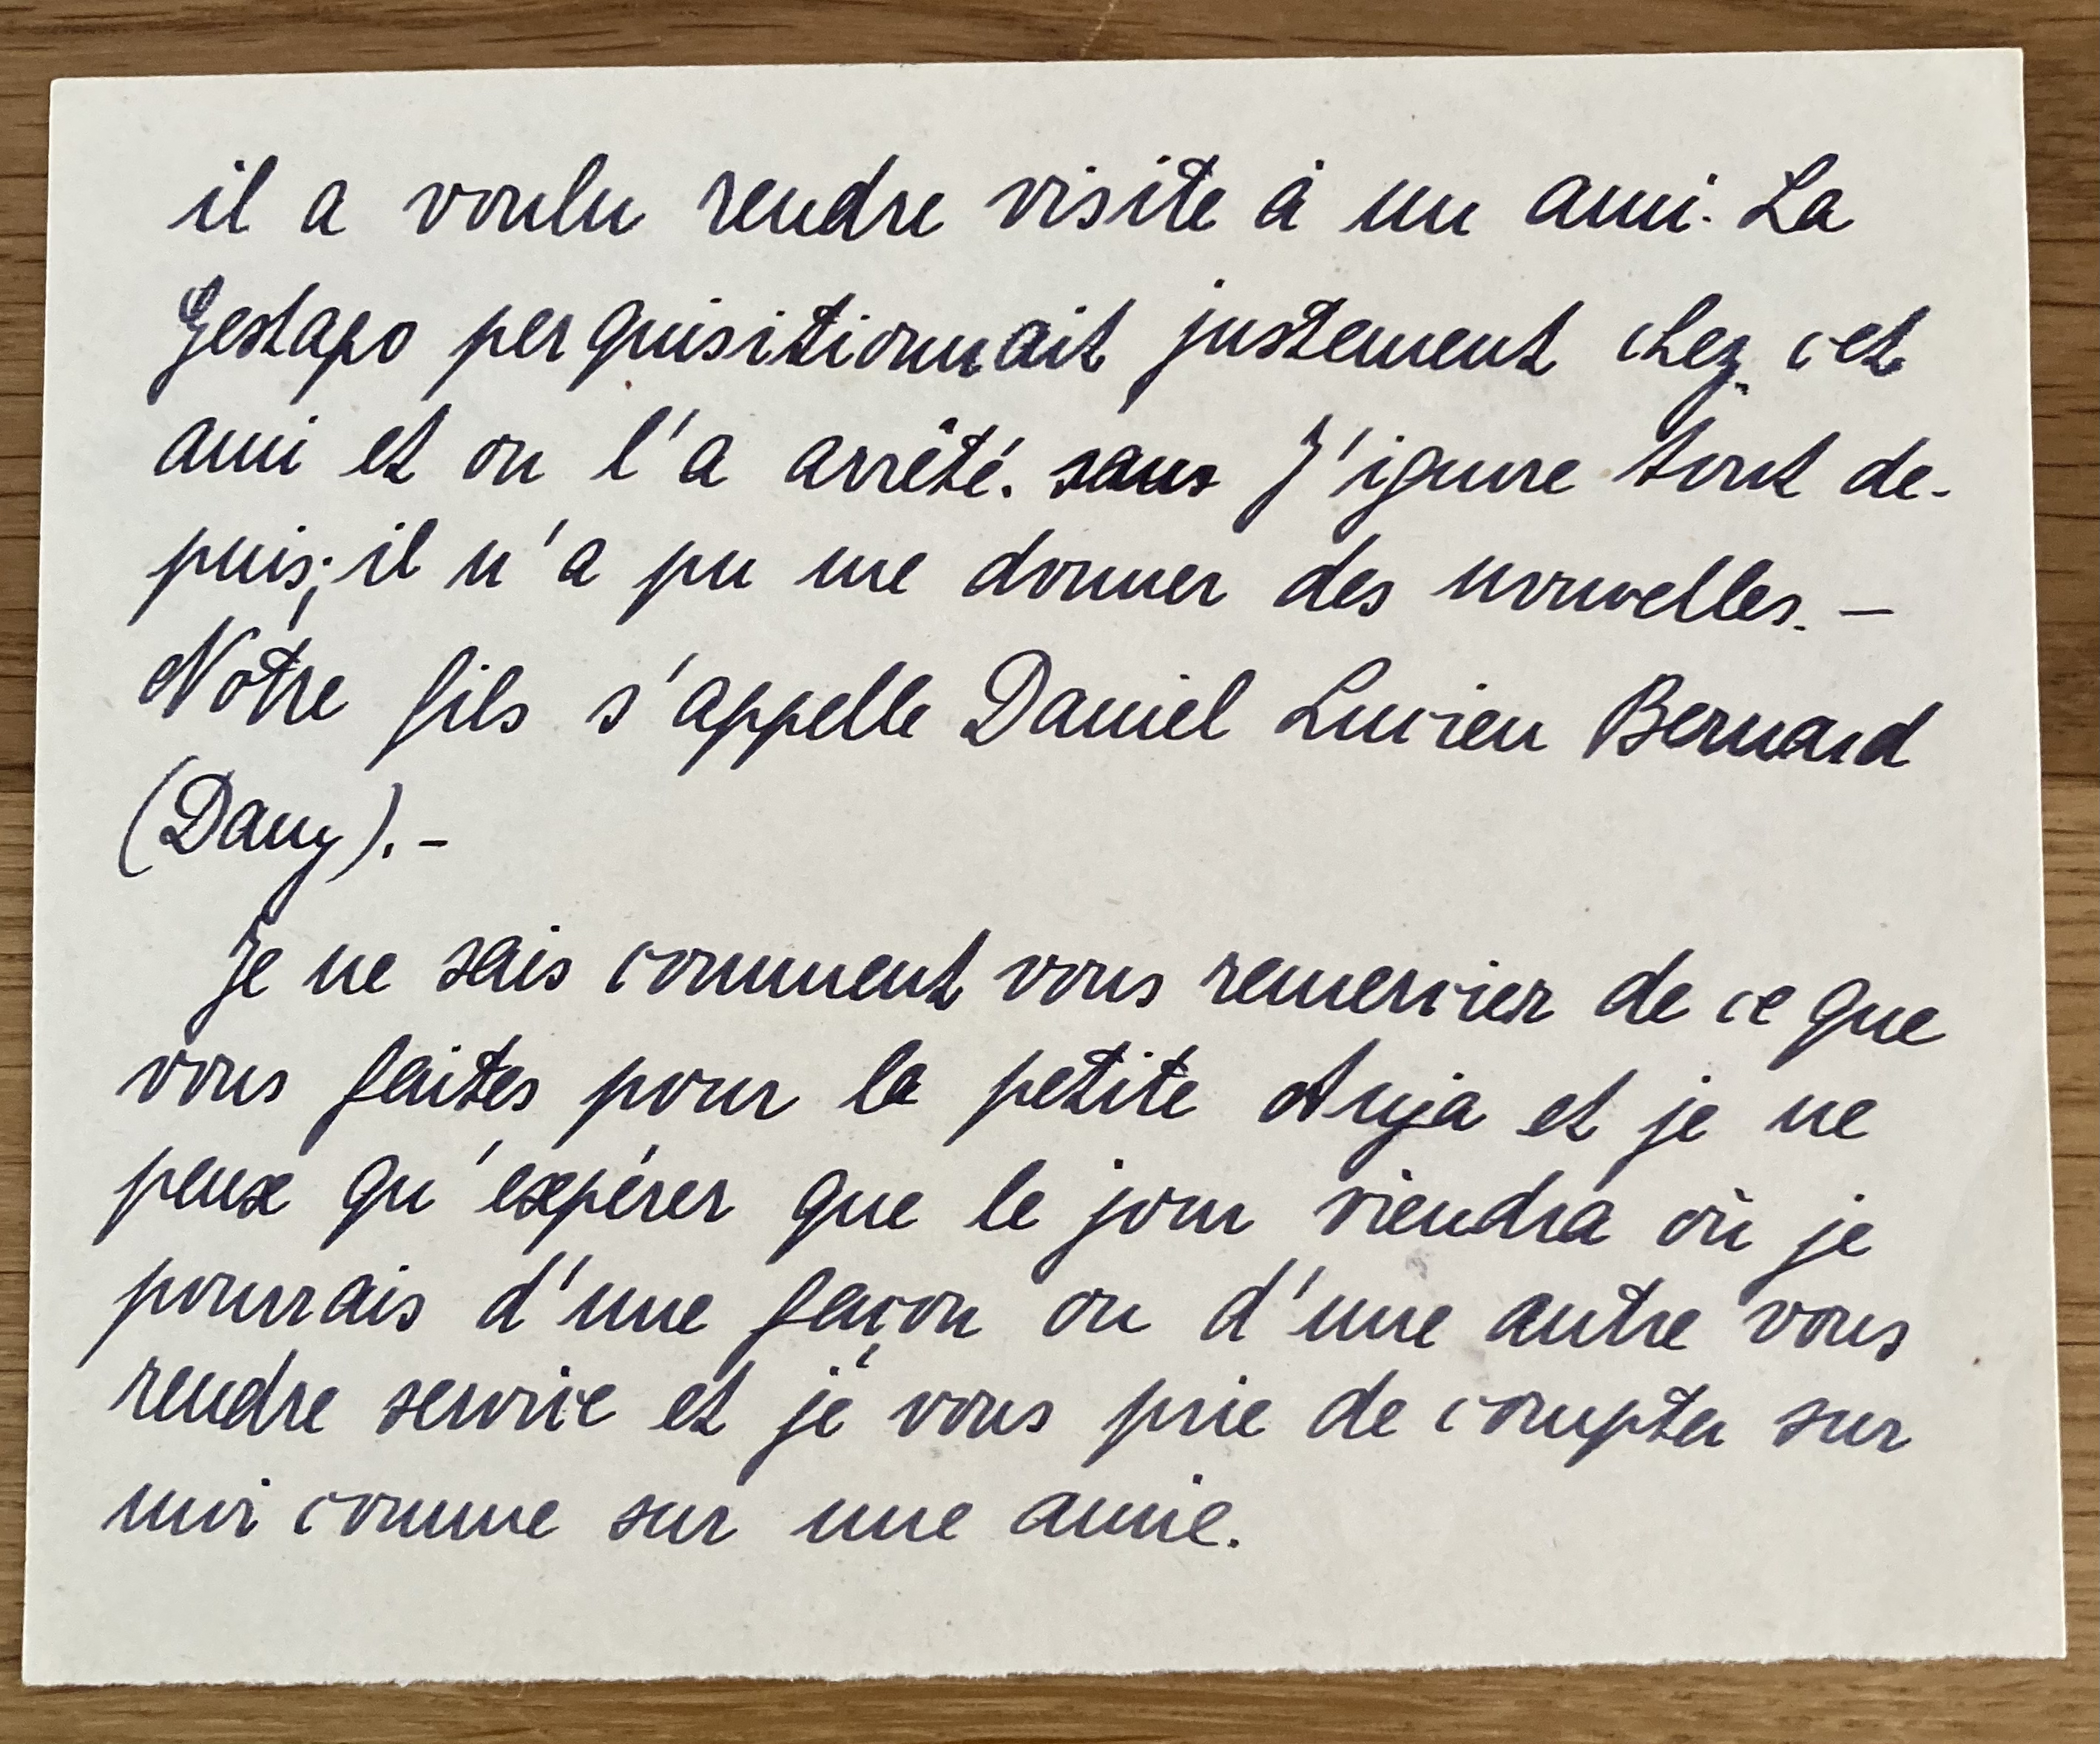 il a voulu rendre visite à un ami. La
Gestapo perquisitionnait justement chez cet
ami et on l'a arrêté. sans J'ignore tout de-
puis; il n'a pu me donner des nouvelles. —
Notre fils s'appelle Daniel Lucien Bernard
(Dany). -
Je ne sais comment vous remercier de ce que
vous faites pour la petite Anja et je ne
peux qu'espérer que le jour viendra où je
pourrais d'une façon ou d'une autre vous
rendre service et je vous prie de compter sur
moi comme sur une amie.